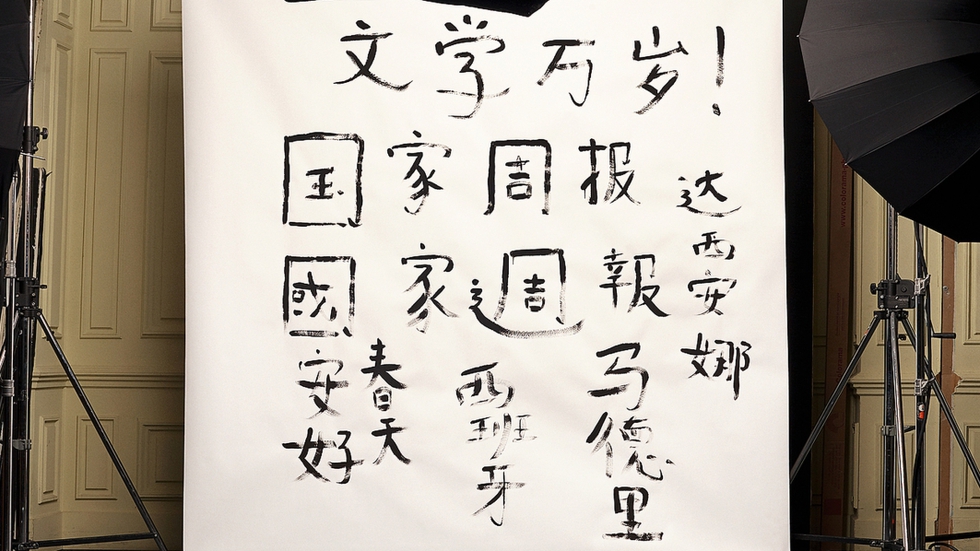 文学万岁!
国家周报
國家週報
达西安娜
安好
春天
西班牙
马德里